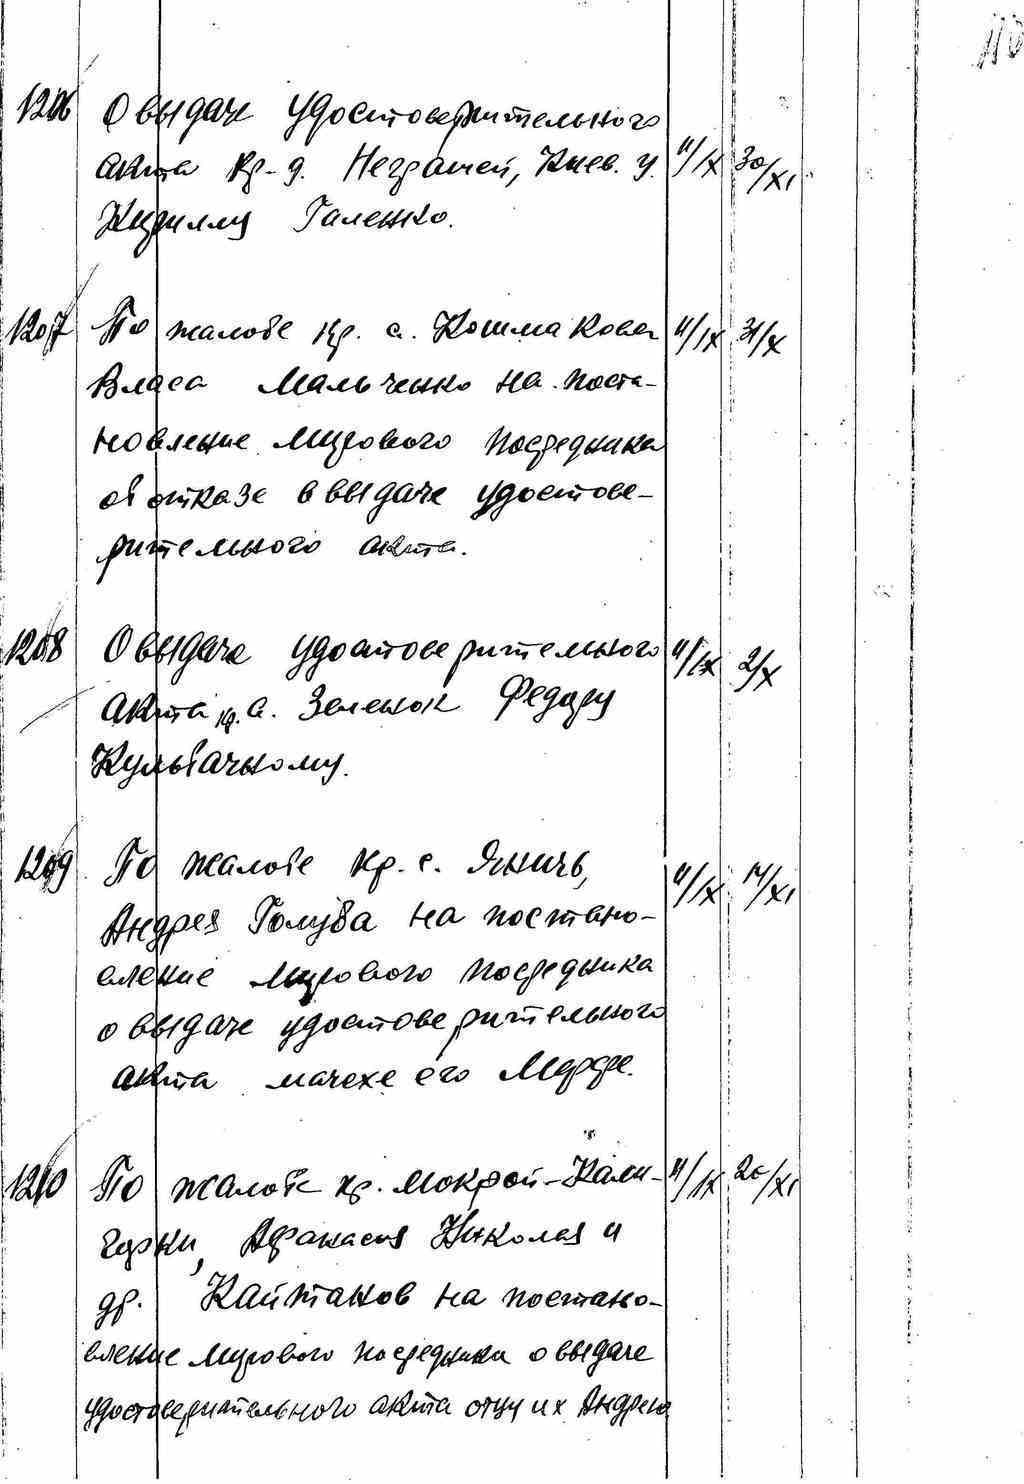 1206 О выдаче удостоверительного
акта кр-д. Неграшей, Киев. у. 11/IX 30/XI
Кириллу Галенко.
1207 По жалобе кр. с. Кошмакова 11/IX 31/X
Власа Мальченко на поста-
новление мирового посредника
об отказе в выдаче удостове-
рительного акта.
1208 О выдаче удостоверительного 11/IX 2/X
акта кр. с. Зеленок Федору
Кульбачному.
1209 По жалобе кр. с. Яничь, 11/IX 14/XI
Андрея Голуба на постано-
вление мирового посредника
о выдаче удостоверительного
акта мачехе его Марфе.
1210 По жалобе кр. Мокрой-Кали- 11/IX 20/XI
горки, Афанасия Николая и
др. Кайтанов на постано-
вление мирового посредника о выдаче
удостоверительного акта отцу их Андрею